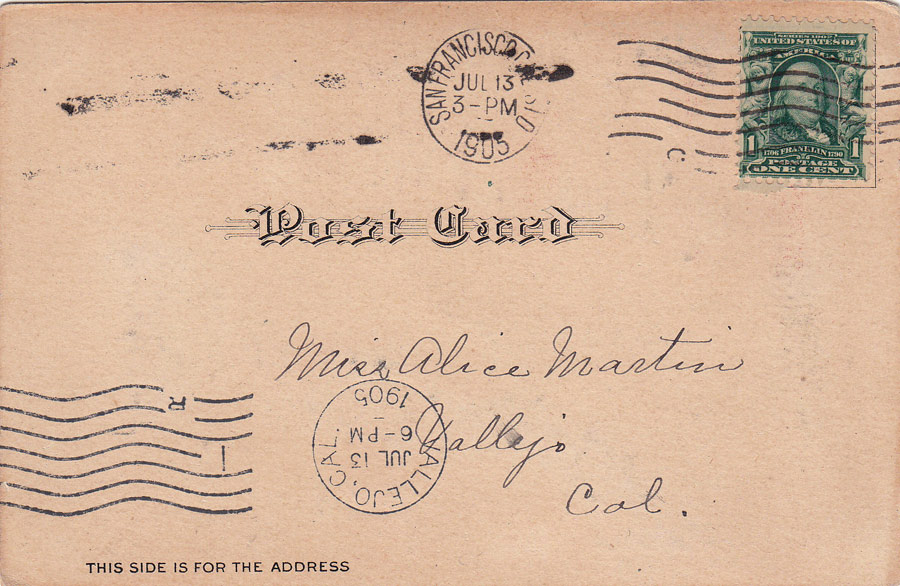 SAN FRANCISCO, C
JUL 13
3-PM
1905
C
SERIES 1902
UNITED STATES OF
AMERICA
1 1706 FRANKLIN 1790 1
POSTAGE
ONE CENT
Post Card
Miss Alice Martin
Vallejo
Cal.
R
1
VALLEJO, CAL.
JUL 13
6-PM
1905
THIS SIDE IS FOR THE ADDRESS